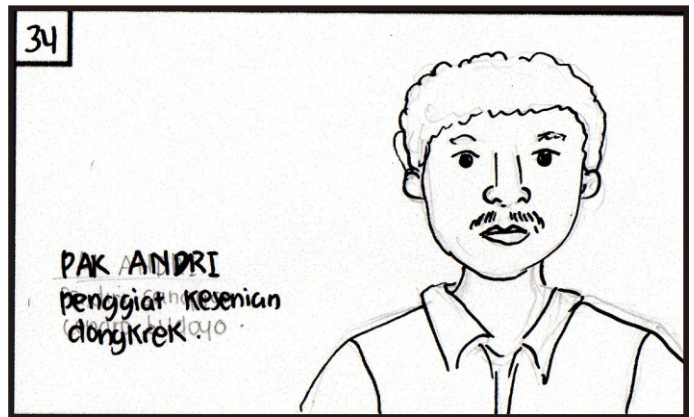 34
PAK ANDRI
penggiat kesenian
dongkrek.